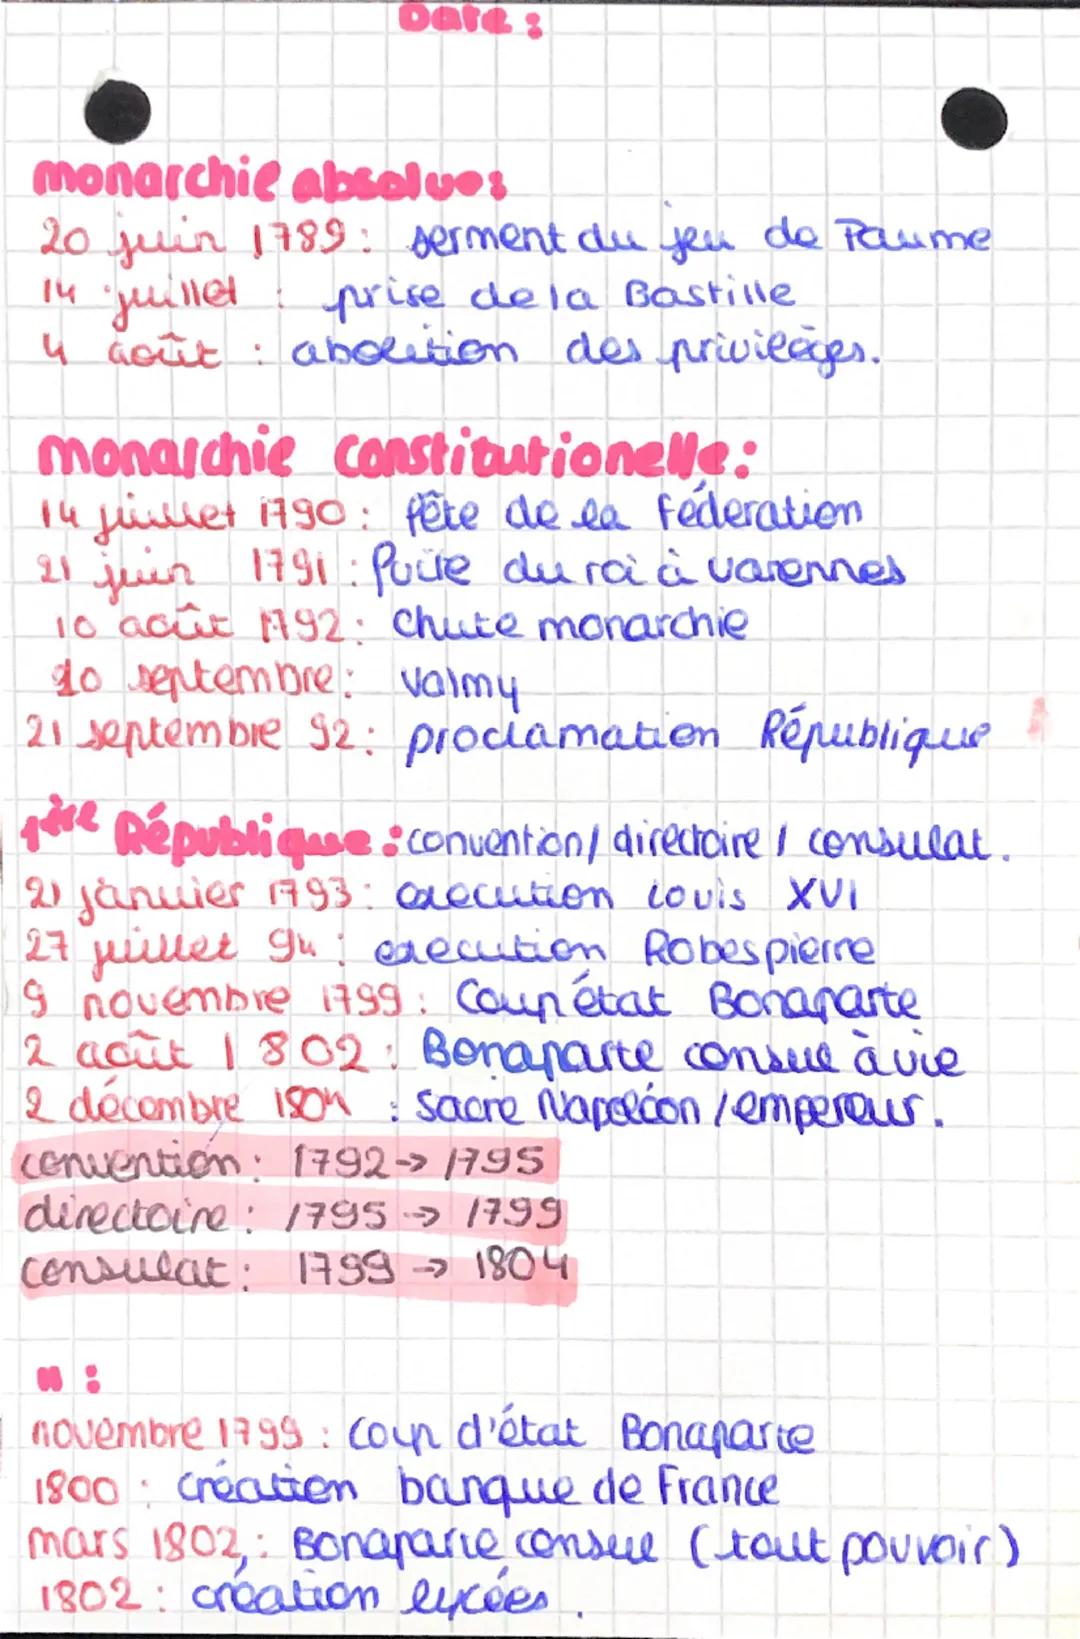 Date :
monarchie absolue :
20 juin 1789 : serment du jeu de Paume
14 juillet : prise de la Bastille
4 août : abolition des privilèges.
monarchie constitutionelle :
14 juillet 1790 : fête de la Féderation
21 juin 1791 : fuite du roi à varennes
10 août 1792 : chute monarchie
20 septembre : valmy
21 septembre 92 : proclamation République
1ère République : convention / directoire / consulat.
21 janvier 1793 : execution Louis XVI
27 juillet 94 : execution Robespierre
9 novembre 1799 : Coup état Bonaparte
2 août 1802 : Bonaparte consul à vie
2 décembre 1804 : sacre Napoléon / empereur.
convention : 1792 → 1795
directoire : 1795 → 1799
consulat : 1799 → 1804
N :
novembre 1799 : coup d'état Bonaparte
1800 : création banque de France
mars 1802 : Bonaparte consul (tout pouvoir)
1802 : création lycées.